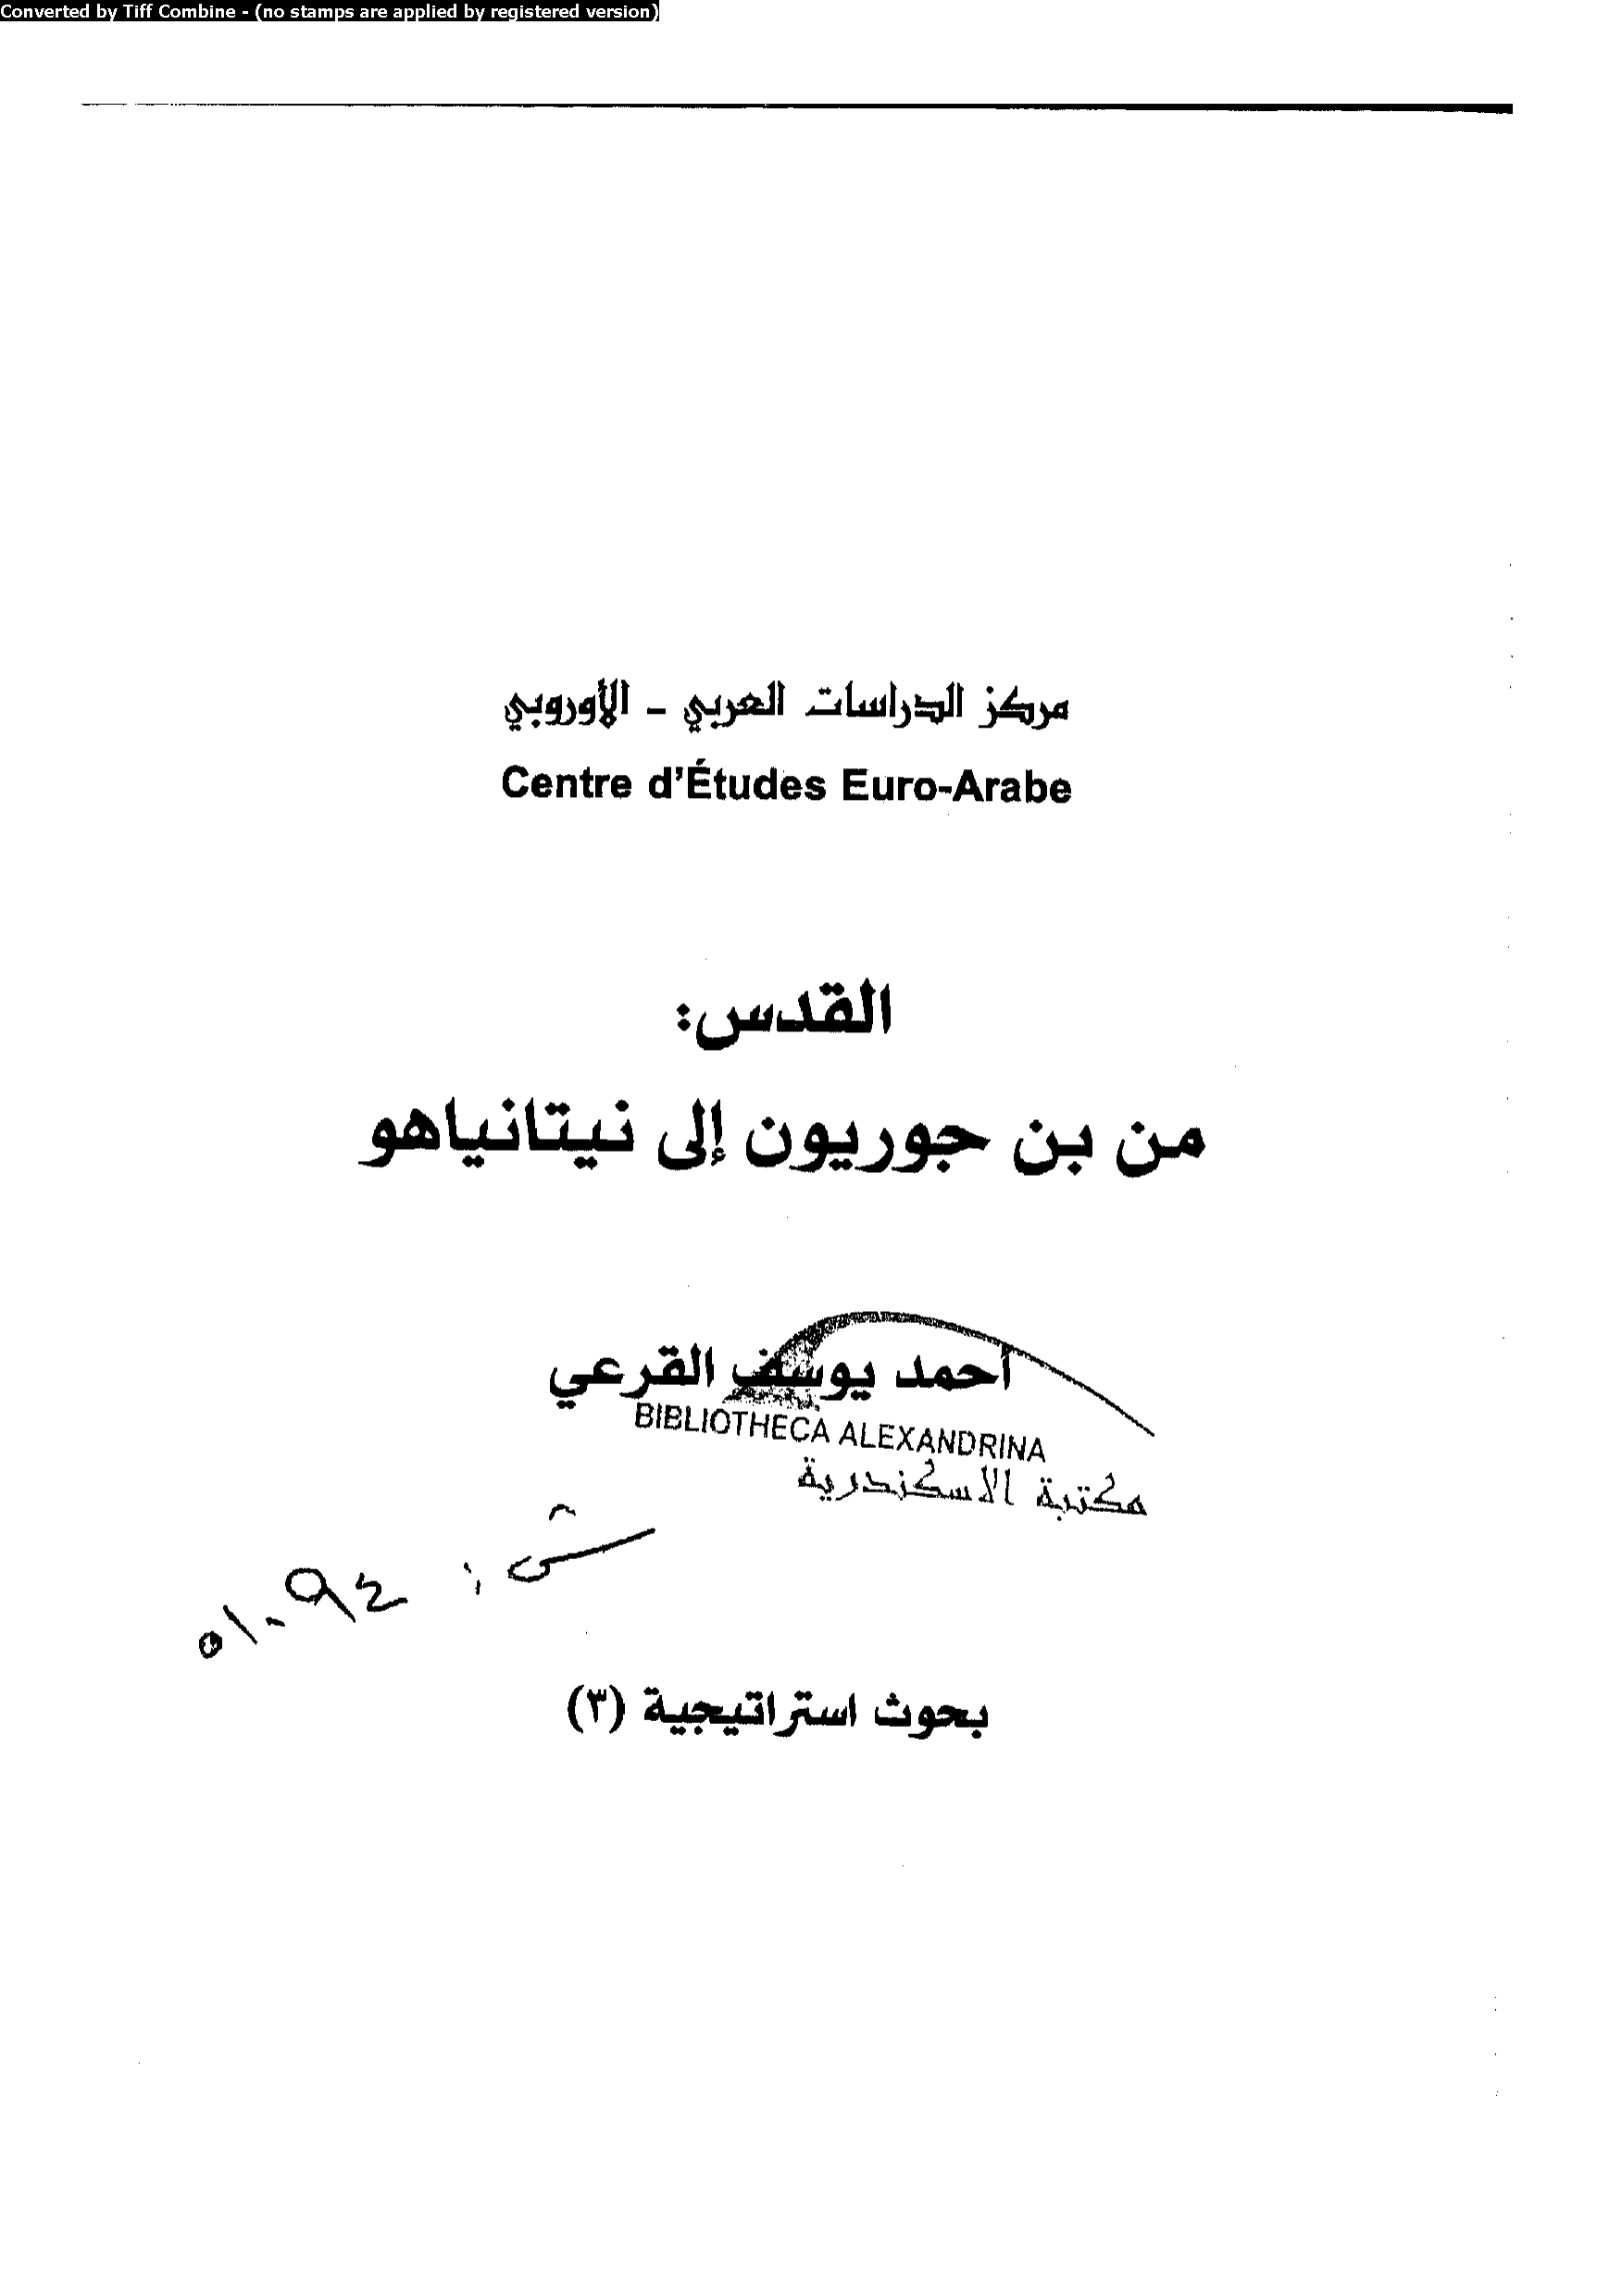 Converted by Tiff Combine - (no stamps are applied by registered version)
مركز الدراسات العربي - الأوروبي
Centre d'Études Euro-Arabe
القدس:
من بن جوريون إلى نيتانياهو
أحمد يوسف القرعي
BIBLIOTHECA ALEXANDRINA
مكتبة الاسكندرية
ش : ٥١٠٩٤
بحوث استراتيجية (٣)